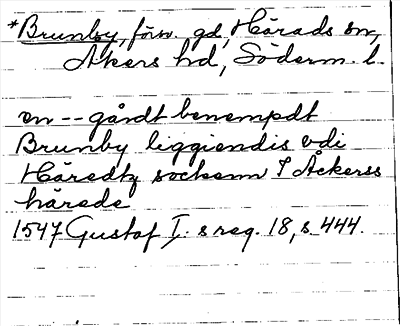 *Brunby, förs. gd, Härads sn,
Åkers hd, Söderm. l.
en -- gårdt benempdt
Brunby liggiendis vdi
Häredtz sockenn I Åkerss
härede
1547 Gustaf I:s reg. 18, s. 444.